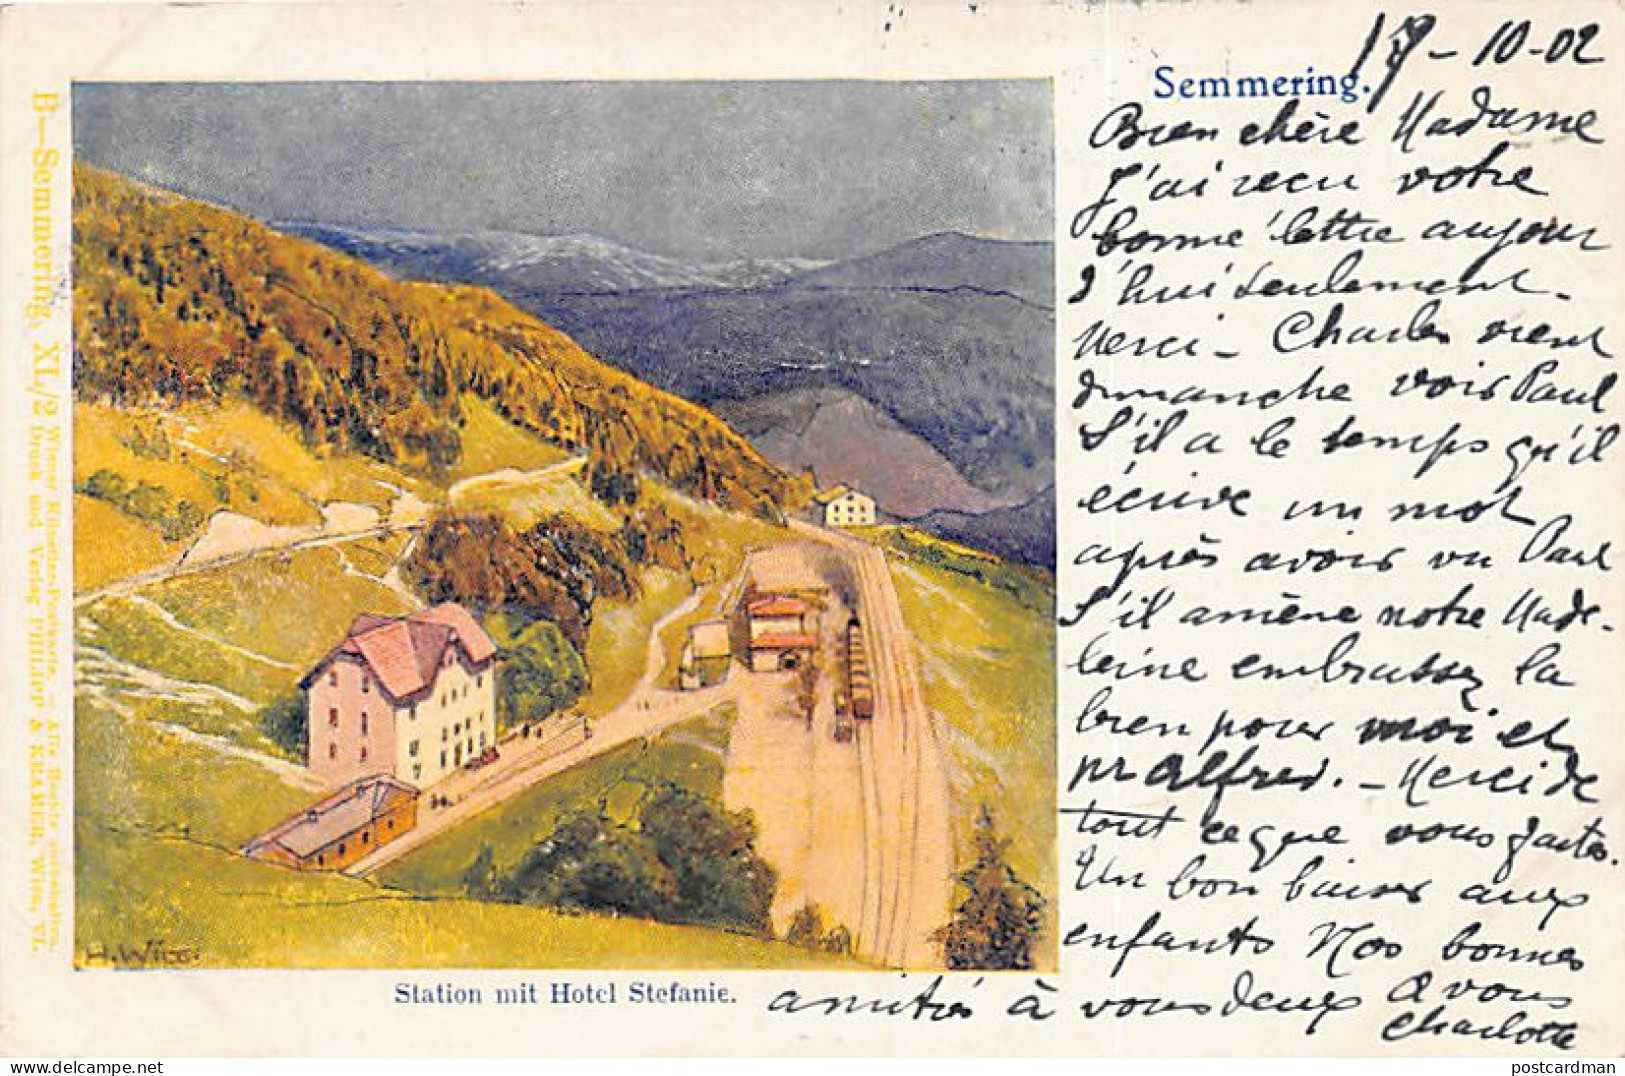 17-10-02
Semmering.
Bien chère Madame
J'ai reçu votre
bonne lettre aujour
d'hui seulement-
Merci - Charles vient
dimanche voir Paul
S'il a le temps qu'il
écrive un mot
après avoir vu Paul
S'il amène notre Made-
leine embrassez la
bien pour moi et
Mr Alfred. - Merci de
tout ce que vous faites.
Un bon baiser aux
enfants Nos bonnes
amitiés à vous deux
A vous
Charlotte
Station mit Hotel Stefanie.
B—Semmering, XL/2 Wiener Künstler-Postkarte. — Alle Rechte vorbehalten.
Druck und Verlag PHILIPP & KRAMER, Wien, VI.
postcardman